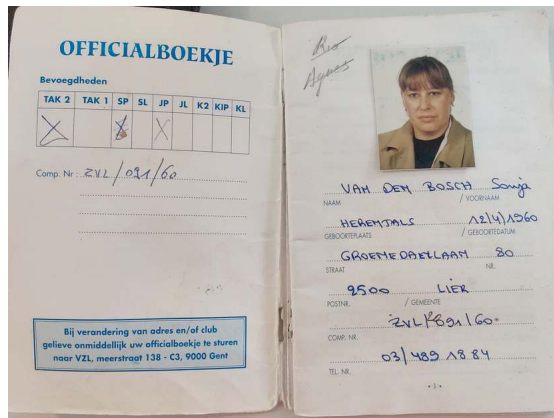 OFFICIALBOEKJE
Bevoegdheden
TAK 2 TAK 1 SP SL JP JL K2 KIP KL
X X X
Comp. Nr : ZVL/091/60
Bij verandering van adres en/of club
gelieve onmiddellijk uw officialboekje te sturen
naar VZL, meerstraat 138 - C3, 9000 Gent
Agnes
VAN DEN BOSCH Sonja
NAAM / VOORNAAM
HERENTALS 12/4/1960
GEBOORTEPLAATS / GEBOORTEDATUM
GROENEDAELLAAN 80
STRAAT NR.
2500 LIER
POSTNR. / GEMEENTE
ZVL/091/60
COMP. NR.
03/489 18 84
TEL. NR.
- 1 -